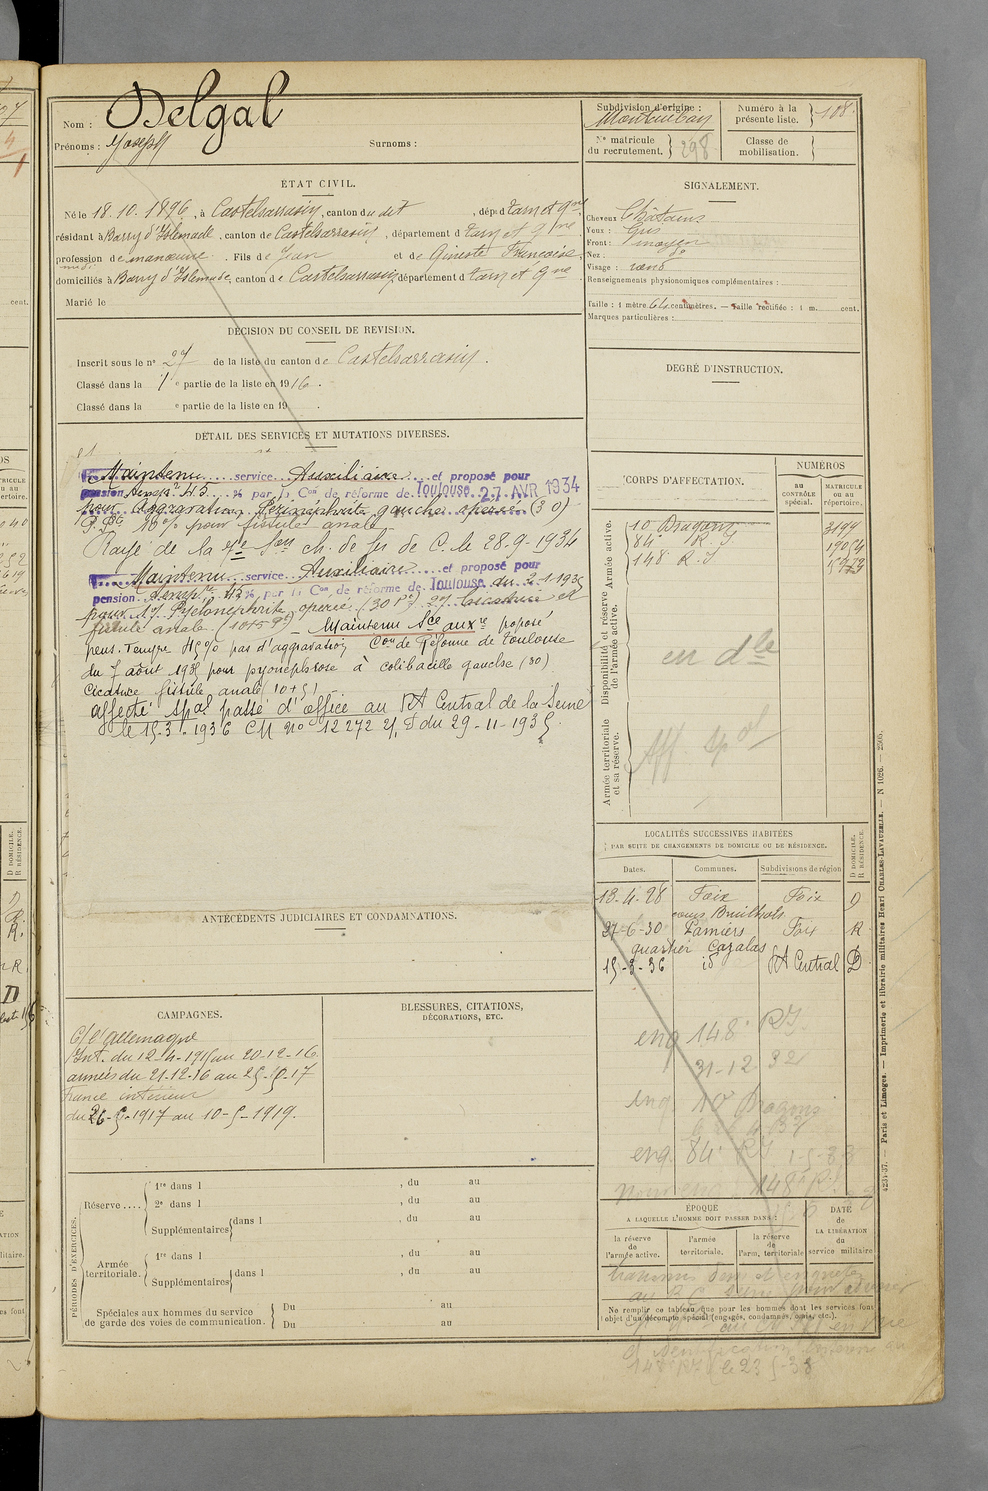 Nom : Delgal
Prénoms : Joseph Surnoms :
Subdivision d'origine :
Montauban
Nº matricule
du recrutement. } 298
Numéro à la
présente liste. } 108.
Classe de
mobilisation. }
ÉTAT CIVIL.
Né le 18.10.1896, à Castelsarrasin, canton du dit, dépt d Tarn et Gne
résidant à Barry d'Islemade, canton de Castelsarrasin, département d Tarn et Gne
profession de manœuvre. Fils de Jean et de Gineste Françoise.
domiciliés à Barry d'Islemade, canton de Castelsarrasin, département d Tarn et Gne
Marié le
SIGNALEMENT.
Cheveux Châtains
Yeux : Gris
Front : moyen
Nez : do
Visage : rond
Renseignements physionomiques complémentaires :
Taille : 1 mètre 64 centimètres. — Taille rectifiée : 1 m. cent.
Marques particulières :
DÉCISION DU CONSEIL DE REVISION.
Inscrit sous le nº 27 de la liste du canton de Castelsarrasin.
Classé dans la 1re partie de la liste en 1916.
Classé dans la e partie de la liste en 19 .
DEGRÉ D'INSTRUCTION.
DÉTAIL DES SERVICES ET MUTATIONS DIVERSES.
Maintenu service Auxiliaire et proposé pour
pension temp. 45 % par la Con de réforme de Toulouse 27 AVR 1934
pour Aggravation Périnéphrite gauche opérée (30)
10% pour fistule anale
Rayé de la 4e Son ch. de fer de C. le 28-9-1934
Maintenu service Auxiliaire et proposé pour
pension temp. 45 %, par la Con de réforme de Toulouse du 2-1-1935
pour 1º/ Pyelonephrite operée (30 %) 2º/ Cicatrice et
fistule anale (10+5 %) — Maintenu Sce auxre proposé
pens. Tempre 45 % pas d'aggravation Con de Réforme de Toulouse
du 7 août 1935 pour pyonéphrose à colibacille gauche (30)
Cicatrice fistule anale (10+5)
affecté Spal passé d'office au RA Central de la Seine
le 15-3-1936 CM nº 12272 du 29-11-1935
CORPS D'AFFECTATION.
NUMÉROS
AU
CONTRÔLE
spécial.
MATRICULE
ou au
répertoire.
Armée active.
10 Dragons 3494
84e R.I 19054
148 R.I
Disponibilité et réserve
de l'armée active.
en dle
Armée territoriale
et sa réserve.
Aff. spal
LOCALITÉS SUCCESSIVES HABITÉES
PAR SUITE DE CHANGEMENTS DE DOMICILE OU DE RÉSIDENCE.
Dates. Communes. Subdivisions de région
D DOMICILE.
R RÉSIDENCE.
13-4-28 Foix Foix D
cours Bouilhols
27-6-30 Pamiers Foix R
quartier Cazalas
15-3-36 id RA Central D
eng 148e RI
31-12-32
eng. 10 Dragons
eng. 84e RI 1-5-33
148e R.I
ANTÉCÉDENTS JUDICIAIRES ET CONDAMNATIONS.
CAMPAGNES.
C/ l'Allemagne
Int. du 12-4-1915 au 20-12-16
armées du 21-12-16 au 25-5-17
France intérieur
du 26-5-1917 au 10-5-1919.
BLESSURES, CITATIONS,
DÉCORATIONS, ETC.
PÉRIODES D'EXERCICES.
Réserve .... 1re dans l , du au
2e dans l , du au
Supplémentaires dans l , du au
Armée
territoriale. 1re dans l , du au
Supplémentaires dans l , du au
Spéciales aux hommes du service
de garde des voies de communication. Du au
Du au
ÉPOQUE
A LAQUELLE L'HOMME DOIT PASSER DANS :
la réserve
de
l'armée active.
l'armée
territoriale.
la réserve
de
l'arm. territoriale
DATE
de
LA LIBÉRATION
du
service militaire
Ne remplir ce tableau que pour les hommes dont les services font
l'objet d'un décompte spécial (engagés, condamnés, omis, etc.).
148e RI le 23-5-38
4231-37. — Paris et Limoges. — Imprimerie et librairie militaires Henri CHARLES-LAVAUZELLE. — N 1026. — 2505.